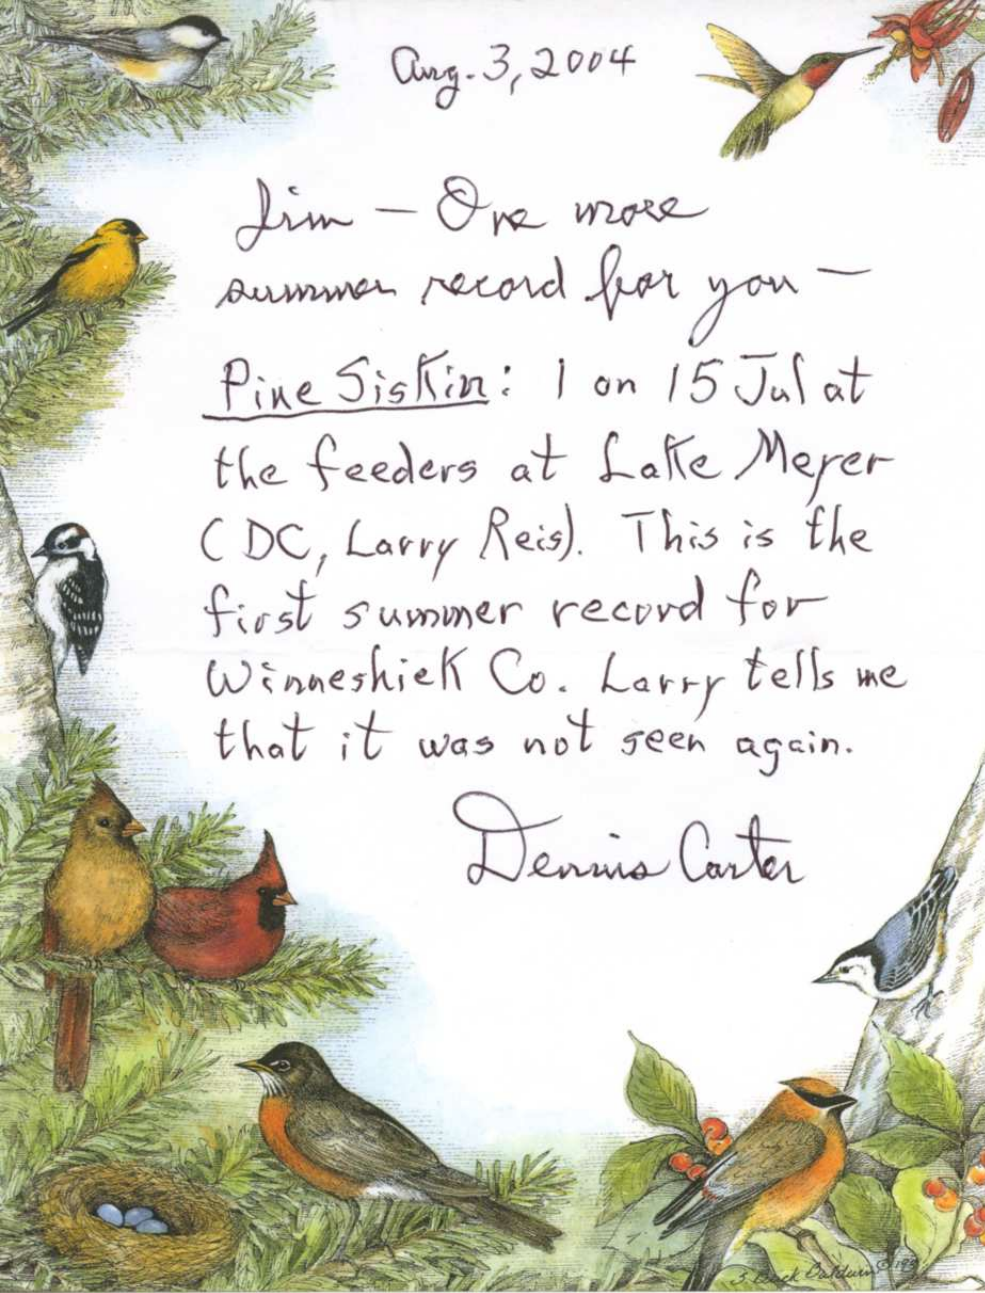 Aug. 3, 2004
Jim — One more
summer record for you —
Pine Siskin: 1 on 15 Jul at
the feeders at Lake Meyer
(DC, Larry Reis). This is the
first summer record for
Winneshiek Co. Larry tells me
that it was not seen again.
Dennis Carter
Baldwin ©